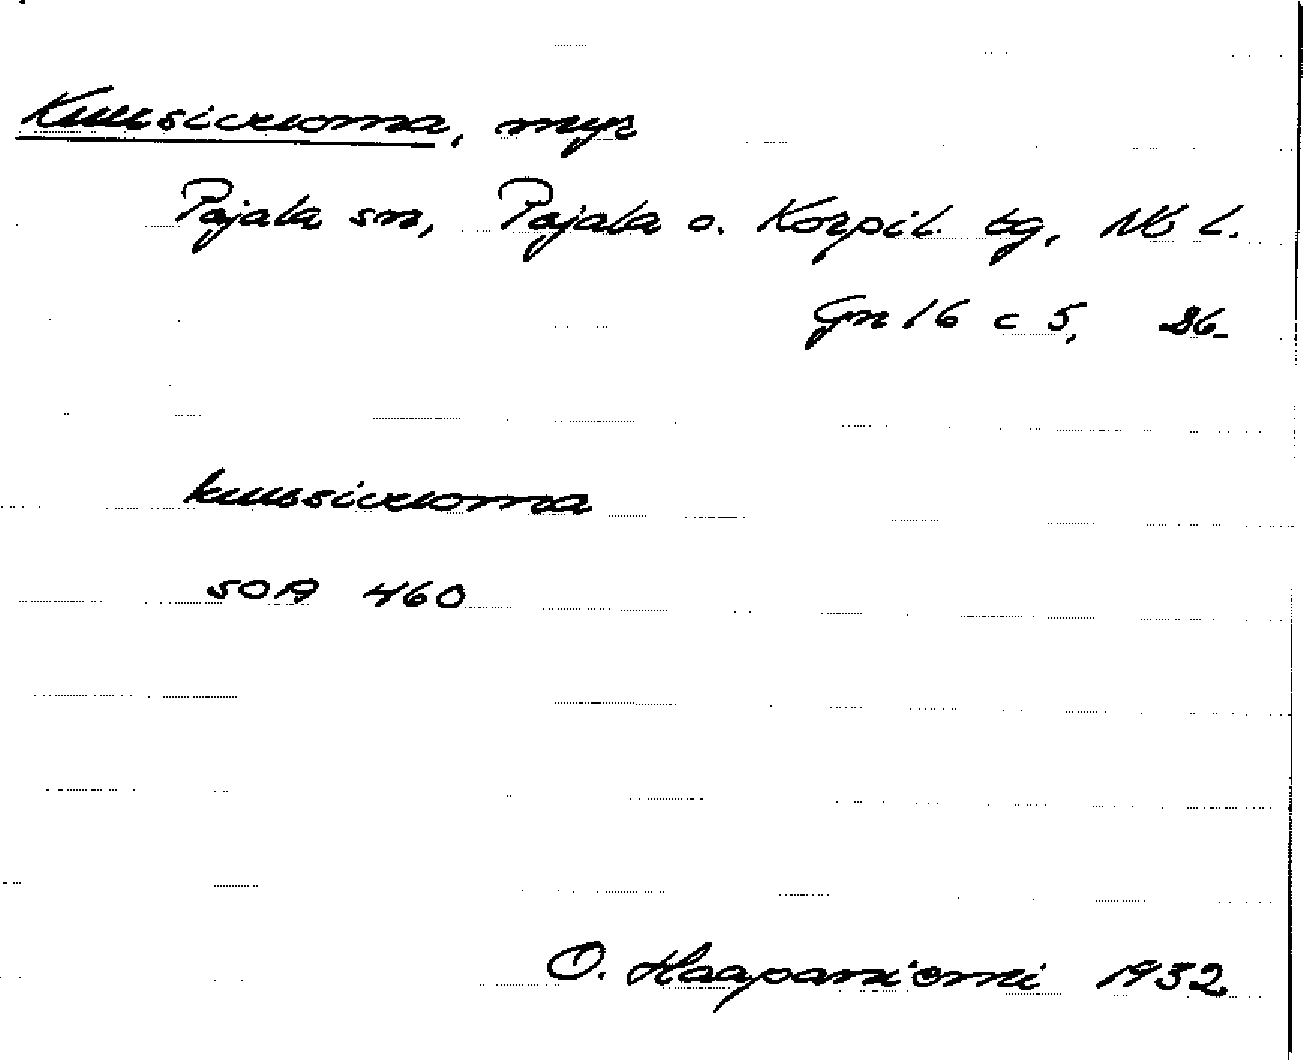 Kuusivuoma, myr
Pajala sn, Pajala o. Korpil. tg, Nb l.
Gn 16 c 5, 26.
kuusivuoma
SOA 460
O. Haapaniemi 1932